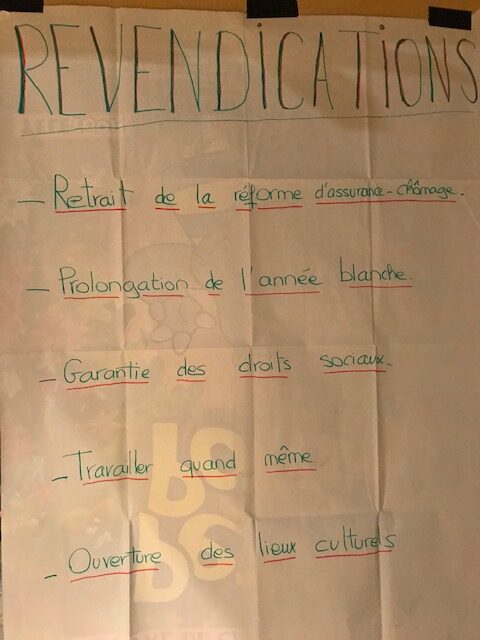 REVENDICATIONS
- Retrait de la réforme d'assurance-chômage.
- Prolongation de l'année blanche.
- Garantie des droits sociaux.
- Travailler quand même
- Ouverture des lieux culturels